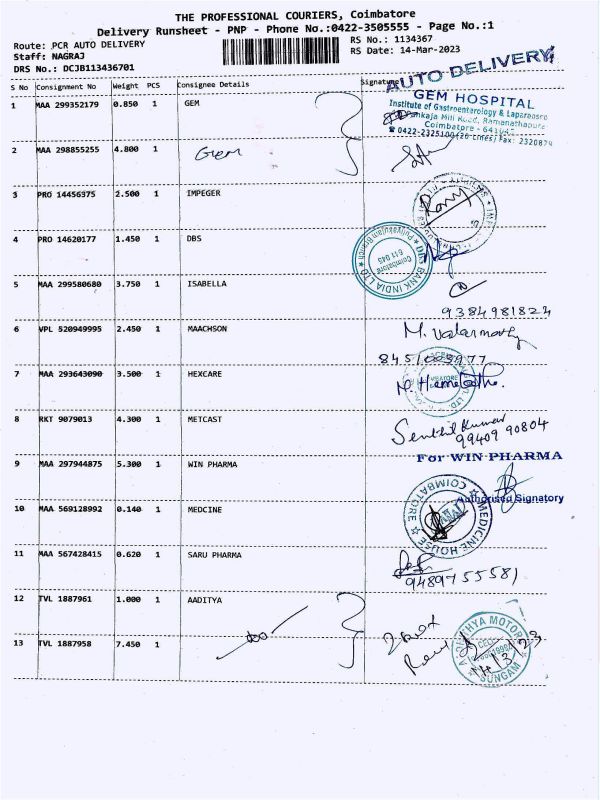 THE PROFESSIONAL COURIERS, Coimbatore
Delivery Runsheet - PNP - Phone No.:0422-3505555 - Page No.:1
Route: PCR AUTO DELIVERY
RS No.: 1134367
Staff: NAGRAJ
RS Date: 14-Mar-2023
DRS No.: DCJB113436701
AUTO DELIVERY
S No Consignment No Weight PCS Consignee Details Signature
1 MAA 299352179 0.850 1 GEM
GEM HOSPITAL
Institute of Gastroenterology &
Mill Road, Ramanathapura
Coimbatore - 641045
0422-2325100 (20 Lines) Fax: 2320879
2 MAA 298855255 4.800 1 Gem
3 PRO 14456375 2.500 1 IMPEGER
4 PRO 14620177 1.450 1 DBS
DBS BANK INDIA LTD Puliyakulam Branch
Coimbatore
641 045
5 MAA 299580680 3.750 1 ISABELLA
9384981824
6 VPL 520949995 2.450 1 MAACHSON
M. Valarmathy
8451003977
7 MAA 293643090 3.500 1 HEXCARE
8 RKT 9079013 4.300 1 METCAST
Senthil Kumar
99409 90804
9 MAA 297944875 5.300 1 WIN PHARMA
For WIN PHARMA
Authorised Signatory
10 MAA 569128992 0.140 1 MEDCINE
MEDICINE HOUSE COIMBATORE
11 MAA 567428415 0.620 1 SARU PHARMA
9489755581
12 TVL 1887961 1.000 1 AADITYA
13 TVL 1887958 7.450 1
MOTOR
SUNGAM
14/3/23